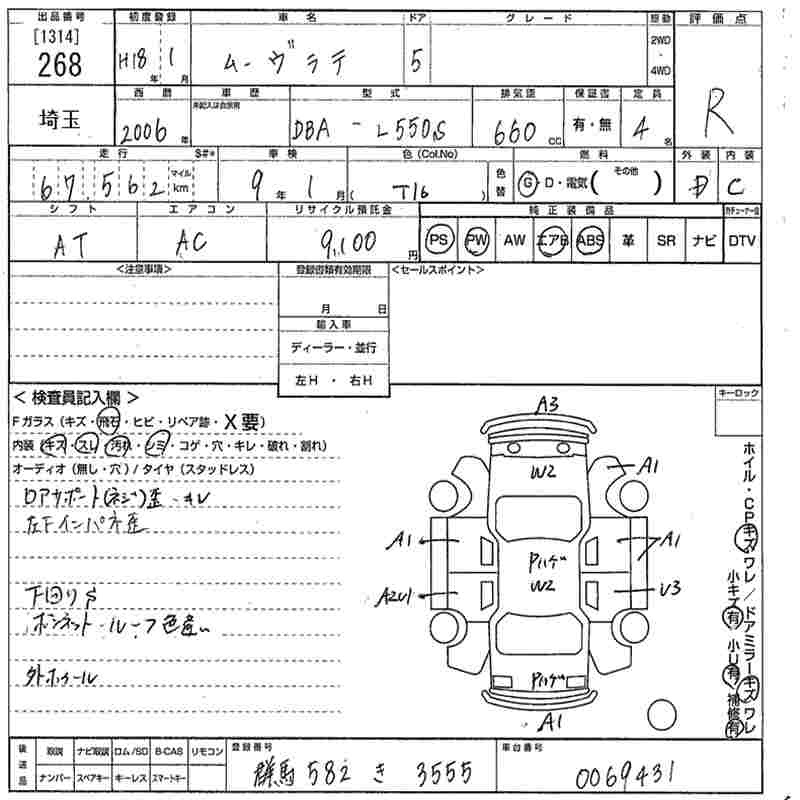 出品番号 初度登録 車名 ドア グレード 駆動 評価点
[1314]
268 H18年 1月 ムーヴラテ 5 2WD・4WD R
西暦 車歴 型式 排気量 保証書 定員
未記入は自家用
埼玉 2006年 DBA-L550S 660cc 有・無 4名
走行 S#* 車検 色(Col.No) 色替 燃料 外装 内装
67,562 マイル km 9年1月 (T16) G・D・電気(その他) D C
シフト エアコン リサイクル預託金 純正装備品
AT AC 9,100円 PS PW AW エアB ABS 革 SR ナビ DTV
<注意事項> 登録書類有効期限 <セールスポイント>
月 日
輸入車
ディーラー・並行
左H・右H
<検査員記入欄> キーロック
Fガラス(キズ・飛石・ヒビ・リペア跡・X要)
内装(キズ・スレ・汚れ・シミ・コゲ・穴・キレ・破れ・割れ)
オーディオ(無し・穴)/タイヤ(スタッドレス)
ロアサポート(ネジ)歪・キレ
左Fインパネ歪
下回りS
ボンネット・ルーフ色違い
外ホイール
A3
W2 A1
A1 Pハゲ A1
A2U1 W2 U3
Pハゲ
A1
ホイル・CPキズワレ/ドアミラーキズワレ
小キズ有 小U有 補修有
後送品 取説 ナビ取説 ロム/SD B-CAS リモコン 登録番号 車台番号
ナンバー スペアキー キーレス スマートキー 群馬 582 き 3555 0069431